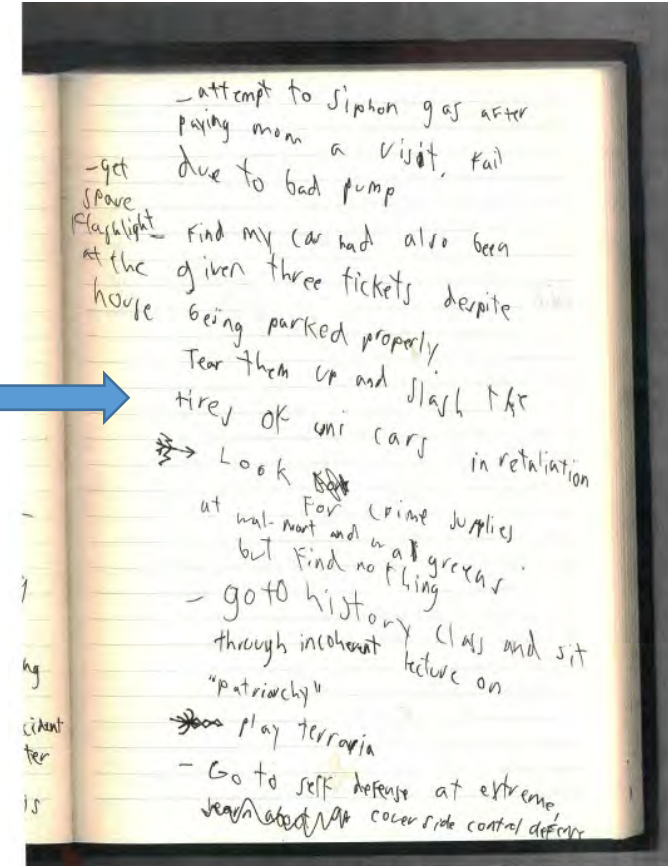 - attempt to siphon gas after
paying mom a visit, fail
due to bad pump
- get
spare
flashlight
at the
house
- Find my car had also been
given three tickets despite
being parked properly.
Tear them up and slash the
tires of uni cars
in retaliation
Look
for crime supplies
at wal-mart and walgreens
but find nothing
- goto history class and sit
through incoherent lecture on
"patriarchy"
play terraria
- Go to self defense at extreme,
cover side control defense
ng
cident
ter
is